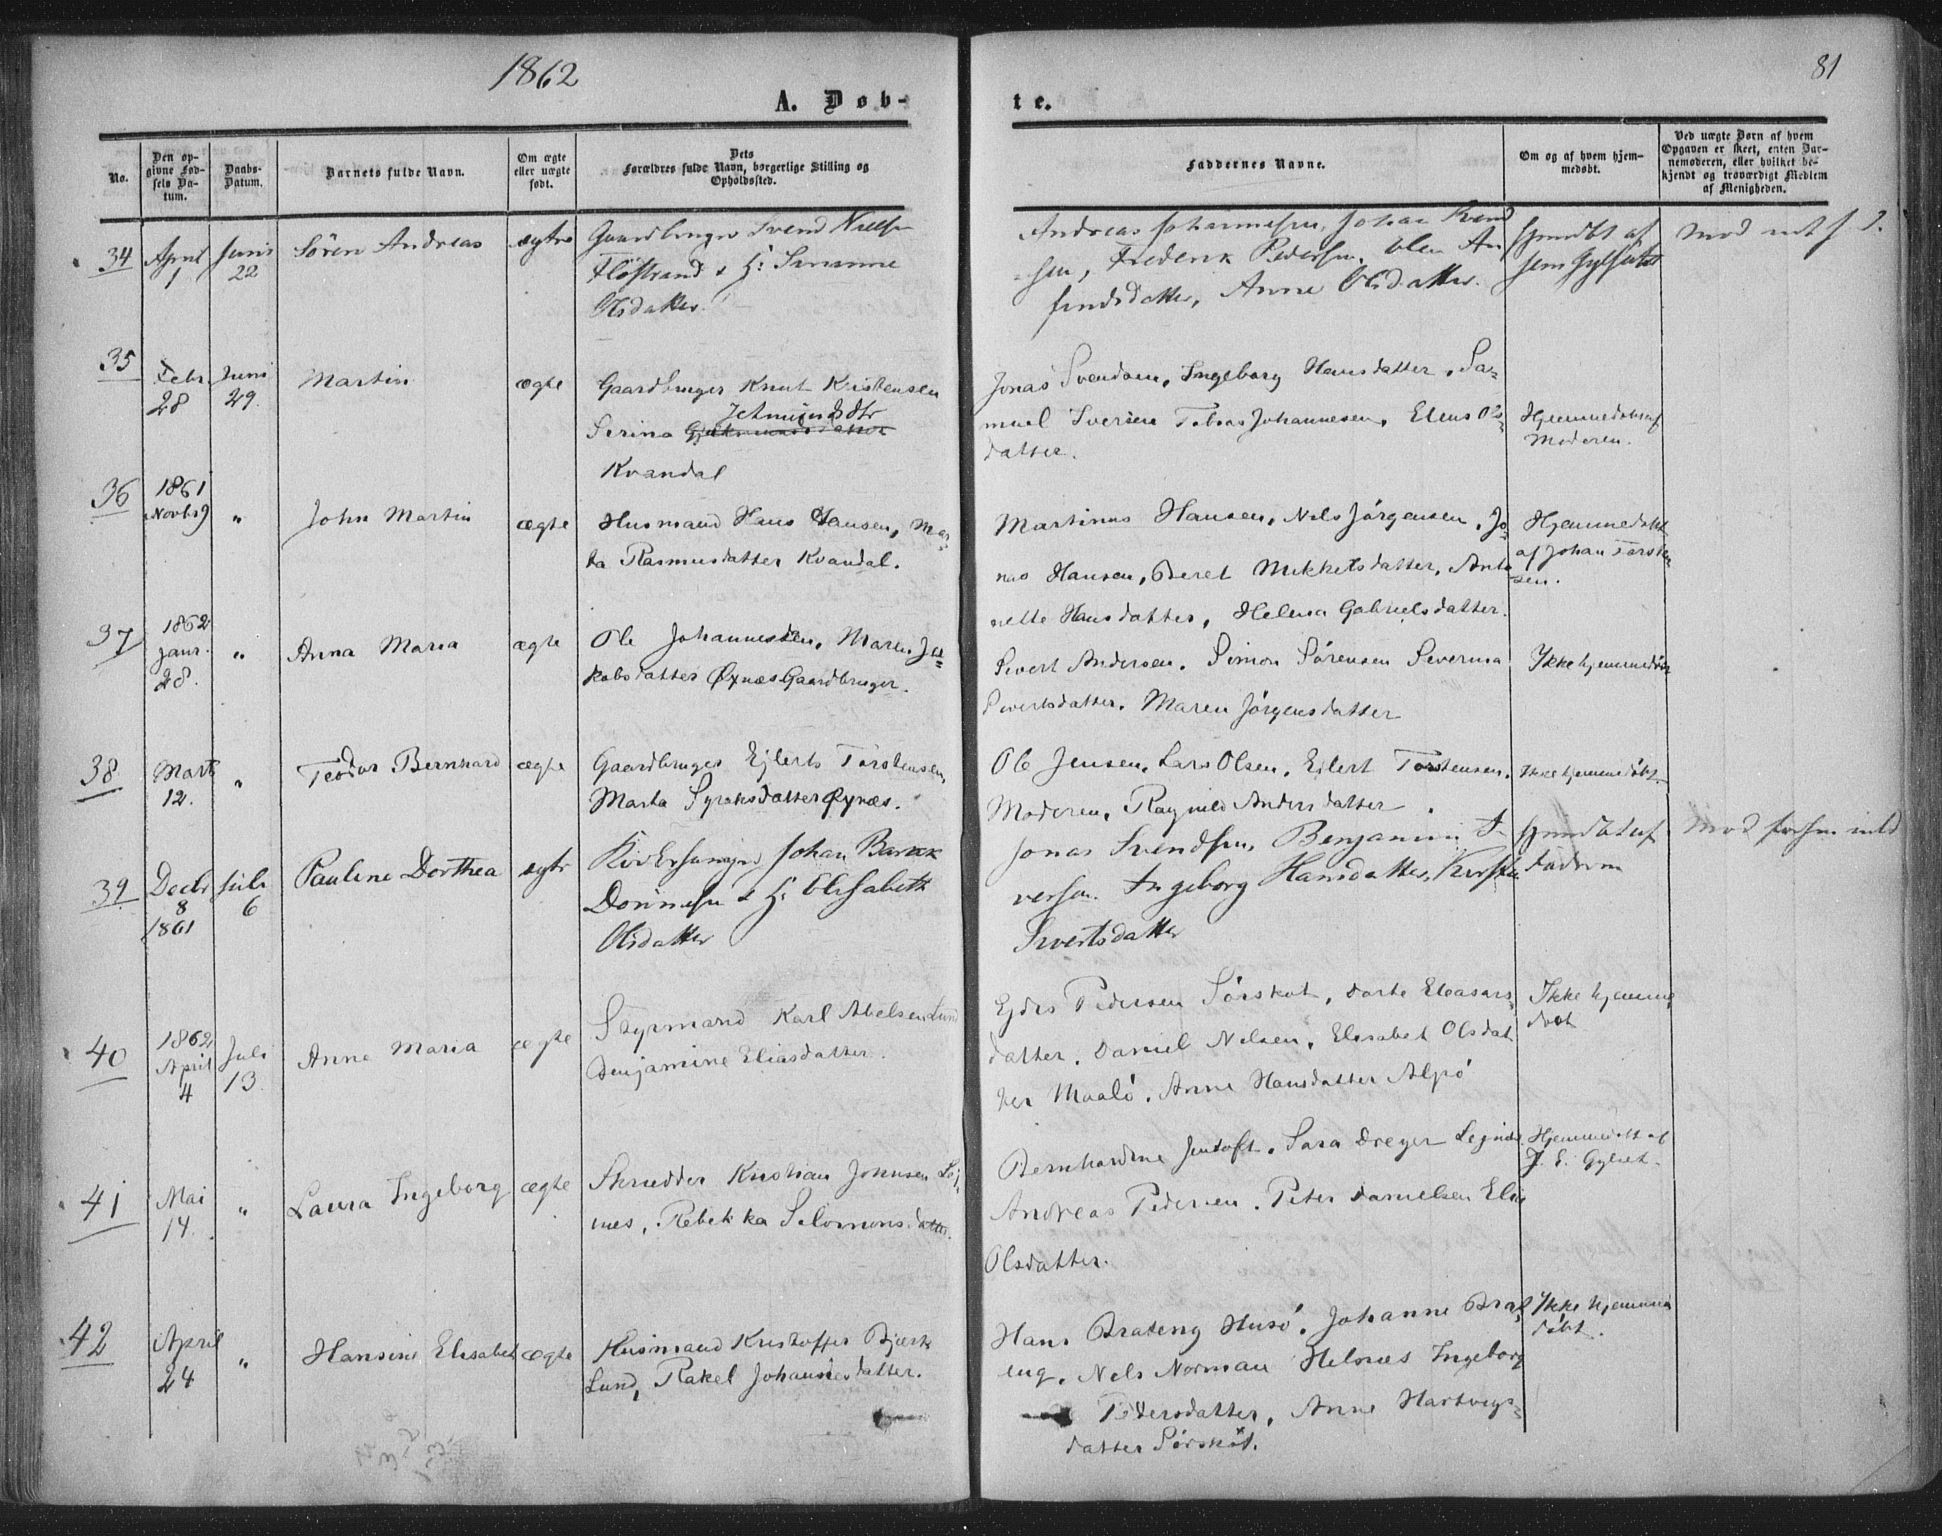 1862
81
A. Døb-
te.
No.
Den op-
givne Fød-
sels Da-
tum.
Daabs-
Datum.
Barnets fulde Navn.
Om ægte
eller uægte
født.
Dets
Forældres fulde Navn, borgerlige Stilling og
Opholdssted.
Faddernes Navne.
Om og af hvem hjem-
medøbt.
Ved uægte Børn af hvem
Opgaven er skeet, enten Bar-
nemoderen, eller hvilket be-
kjendt og troværdigt Medlem
af Menigheden.
34
April
1
Juni
22
Sören Andreas
ægte
Gaardbruger Svend Nielsen
Flöstrand &
Olsdatter
Andreas Johannesen, Johan Svend
sen, Frederik Pedersen,
datter, Anne Olsdatter.
hjmdbt af
35
Febr.
28
Juni
29.
Martin
ægte
Gaardbruger Knut Kristensen
Jetmundsdtr
Serina
Kvandal
Jonas Svendsen, Ingeborg Hansdatter, Sa-
muel Iversen Tobias Johannesen, Elens Ols-
datter.
Hjemmedøbt af
Moderen.
36
1861
Novbr 9
"
John Martin
ægte
Husmand Hans Hansen, Mar-
ta Rasmusdatter Kvandal.
Martinus Hansen, Nels Jörgensen, Jo-
nas Hansen, Beret Mikkelsdatter, Anto
nette Hansdatter, Helena Gabrielsdatter.
Hjemmedøbt
af Johan Torsten
sen.
37
1862
Janr.
28.
"
Anna Maria
ægte
Ole Johannesen, Maren Ja-
kobsdatter Øxnæs Gaardbruger.
Sivert Andersen, Simon Sörensen Severina
Sivertsdatter, Maren Jörgensdatter
Ikke hjemmedøbt
38
Marts
12.
"
Teodor Bernhard
ægte
Gaardbruger Ejlerts Torstensen,
Marta Syraksdatter Øxnæs.
Ole Jensen, Lars Olsen, Eilert Torstensen,
Moderen, Ragnild Andersdatter
Ikke hjemmedøbt
39
Decbr
8
1861
Juli
6
Pauline Dorthea
ægte
Johan
Elisabeth
Olsdatter
Jonas Svendsen, Benjamin I
versen. Ingeborg Hansdatter,
Sivertsdatter
hjmdbt af
Faderen
40
1862
April
4
Juli
13.
Anne Maria
ægte
Styrmand Karl Abelsen Lund
Benjamine Eliasdatter.
Pedersen Sörskot, Dorte Eleasars
datter, Daniel Nelsen, Elisabet Olsdat
ter Maalö, Anne Hansdatter Alsö
Ikke hjemme
døbt
41
Mai
14.
"
Laura Ingeborg
ægte
Skredder Kristian Johnsen
nes, Rebekka Salomonsdatter.
Bernhardine Jentoft, Sara Dreyer
Andreas Pedersen, Peter Danielsen
Olsdatter.
Hjemmedøbt af
42
April
24
"
Hansine Elisabet
ægte
Husmand Kristoffer Bjærk
Lund, Rakel Johannesdatter.
Hans Brateng Husö, Johanne Brat
eng, Nels Norman Helnæs Ingeborg
Pedersdatter, Anne Hartvigs-
datter Sörskot.
Ikke hjemme
døbt.